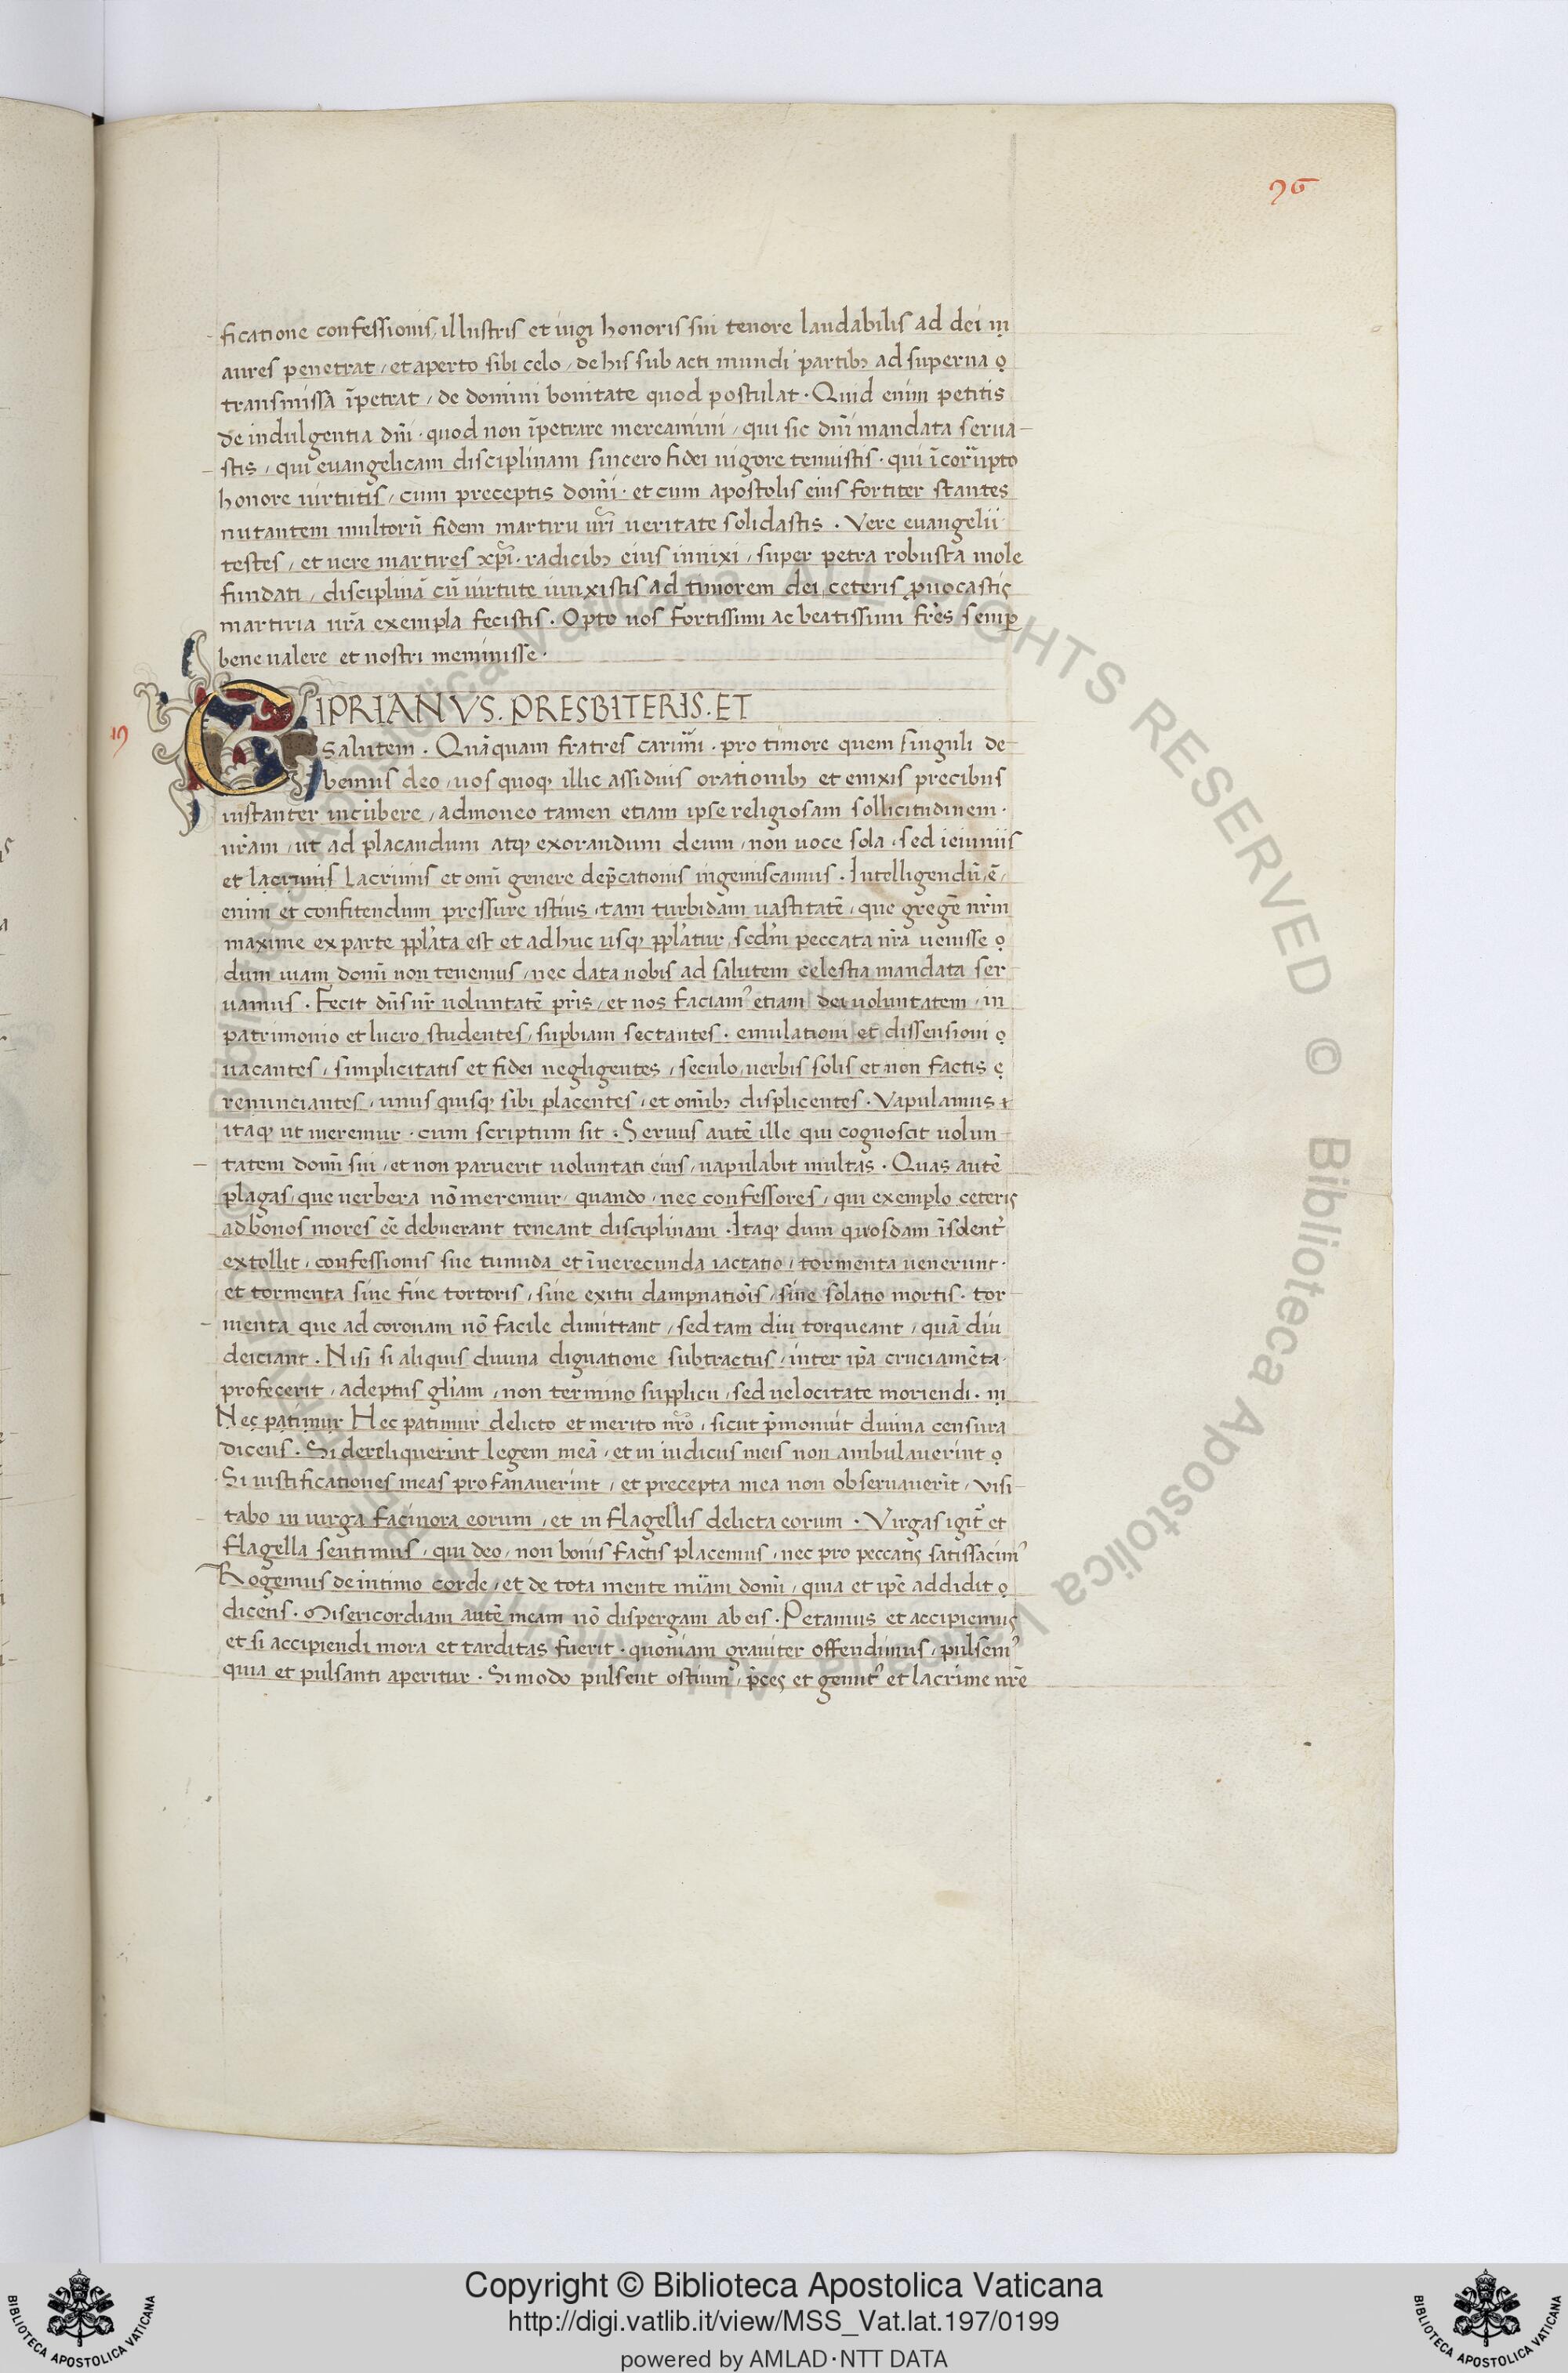 96
ficatione confessionis, illustris et iugi honoris sui tenore laudabilis ad dei
aures penetrat, et aperto sibi celo, de his sub acti mundi partibꝫ ad superna
transmissa īpetrat, de domini bonitate quod postulat. Quid enim petitis
de indulgentia dn̄i. quod non īpetrare mereamini, qui sic dn̄i mandata serua-
stis, qui euangelicam disciplinam sincero fidei uigore tenuistis. qui ī corrupto
honore uirtutis, cum preceptis domī. et cum apostolis eius fortiter stantes
nutantem multorū fidem martiru ur̄i ueritate solidastis. Vere euangelii
testes, et uere martires xp̄i. radicibꝫ eius innixi, super petra robusta mole
fundati, disciplinā cū uirtute iunxistis ad timorem dei ceteris ꝓuocastis
martiria ur̄a exempla fecistis. Opto uos fortissimi ac beatissimi fr̄es semꝑ
bene ualere et nostri meminisse.
19
CIPRIANVS. PRESBITERIS. ET
Salutem. Quāquam fratres carim̄i. pro timore quem singuli de-
bemus deo, uos quoqꝫ illic assiduis orationibꝫ et enixis precibus
instanter incūbere, admoneo tamen etiam ipse religiosam sollicitudinem.
ur̄am, ut ad placandum atqꝫ exorandum deum, non uoce sola, sed ieiuniis
et lacrimis lacrimis et omī genere dep̄cationis ingemiscamus. Intelligendū ē,
enim et confitendum pressure istius, tam turbidam uastitatē, que gregē nr̄m
maxime ex parte ꝑpl̄ata est et adhuc usqꝫ ꝑpl̄atur, scd̄m peccata nr̄a uenisse
dum uiam domī non tenemus, nec data nobis ad salutem celestia mandata ser-
uamus. Fecit dn̄s ur̄ uoluntatē pr̄is, et nos faciamꝰ etiam dei uoluntatem, in
patrimonio et lucro studentes, suꝑbiam sectantes. emulationi et dissensioni
uacantes, simplicitatis et fidei negligentes, seculo, uerbis solis et non factis
renunciantes, unus quisqꝫ sibi placentes, et omībꝫ displicentes. Vapulamus
itaqꝫ ut meremur. cum scriptum sit. Seruus autē ille qui cognoscit uolun-
tatem domī sui, et non paruerit uoluntati eius, uapulabit multas. Quas autē
plagas, que uerbera nō meremur, quando, nec confessores, qui exemplo ceteris
ad bonos mores eē debuerant teneant disciplinam. Itaqꝫ dum quosdam īsolent᷑
extollit, confessionis sue tumida et īuerecunda iactatio, tormenta uenerunt.
et tormenta sine fine tortoris, sine exitu dampnatiōis, sine solatio mortis. tor-
menta que ad coronam nō facile dimittant, sed tam diu torqueant, quā diu
deiciant. Nisi si aliquis diuina dignatione subtractus, inter ip̄a cruciamēta.
profecerit, adeptus gl̄iam, non termino supplicii, sed uelocitate moriendi.
Nec patimur Hec patimur delicto et merito nr̄o, sicut p̄monuit diuina censura
dicens. Si dereliquerint legem meā, et in iudiciis meis non ambulauerint
Si iustificationes meas profanauerint, et precepta mea non obseruauerīt, visi-
tabo in uirga facinora eorum, et in flagellis delicta eorum. Virgas igit᷑ et
flagella sentimus, qui deo, non bonis factis placemus, nec pro peccatis satissacimꝰ
Rogemus de intimo corde, et de tota mente mīam domī, quia et ip̄e addidit
dicens. Misericordiam autē meam nō dispergam ab eis. Petamus et accipiemus
et si accipiendi mora et tarditas fuerit. quoniam grauiter offendimus, pulsemꝰ
quia et pulsanti aperitur. Si modo pulsent ostium, p̄ces et gemitꝰ et lacrime nr̄e
Biblioteca Apostolica Vaticana ALL RIGHTS RESERVED © Biblioteca Apostolica Vaticana
Copyright © Biblioteca Apostolica Vaticana
http://digi.vatlib.it/view/MSS_Vat.lat.197/0199
powered by AMLAD·NTT DATA
BIBLIOTECA APOSTOLICA VATICANA
BIBLIOTECA APOSTOLICA VATICANA